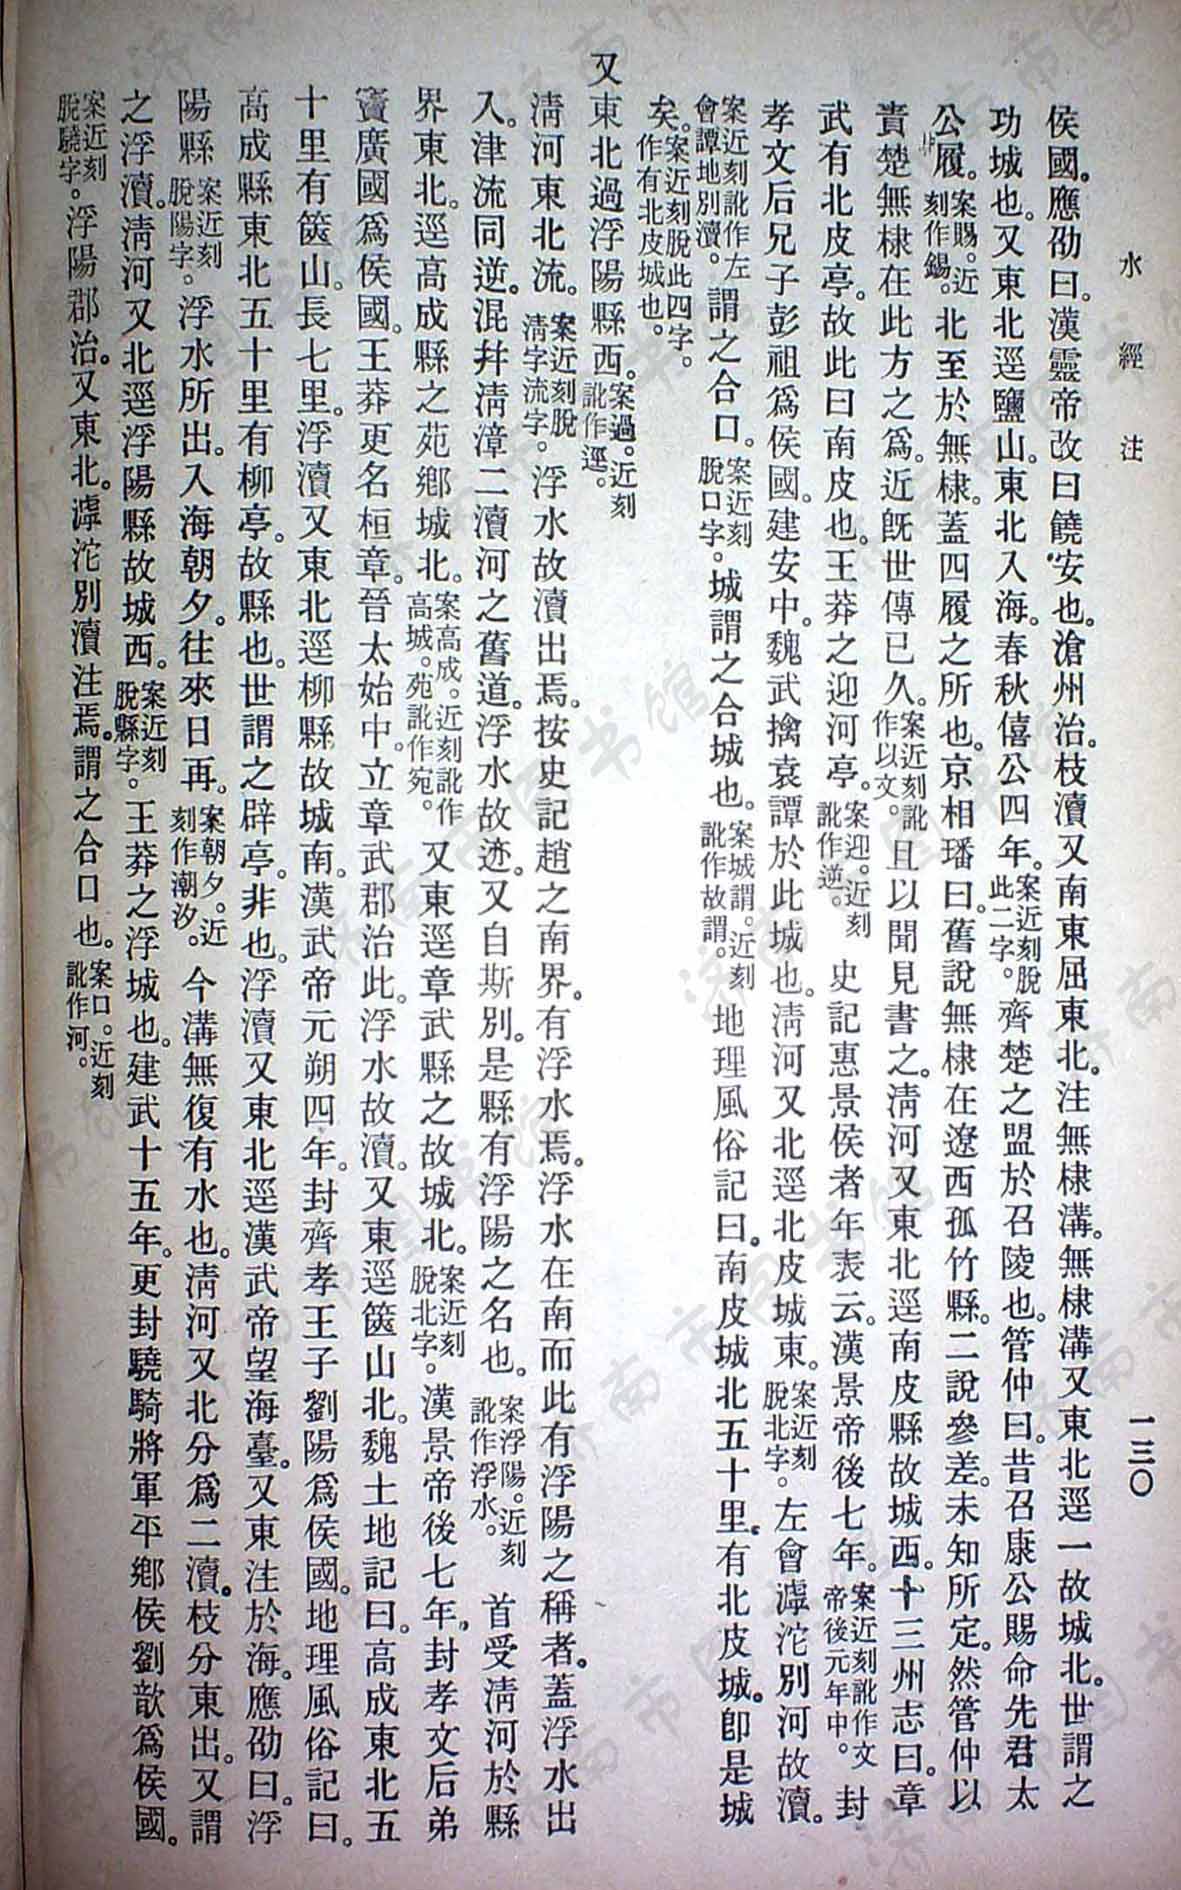 水經注
一三〇
侯國。應劭曰。漢靈帝改曰饒安也。滄州治。枝瀆又南東屈東北。注無棣溝。無棣溝又東北逕一故城北。世謂之
功城也。又東北逕鹽山。東北入海。春秋僖公四年。案近刻脫此二字。齊楚之盟於召陵也。管仲曰。昔召康公賜命先君太
公履。案賜。近刻作錫。北至於無棣。蓋四履之所也。京相璠曰。舊說無棣在遼西孤竹縣。二說參差。未知所定。然管仲以
責楚無棣在此方之爲。近旣世傳已久。案近刻訛作以文。且以聞見書之。淸河又東北逕南皮縣故城西。十三州志曰。章
武有北皮亭。故此曰南皮也。王莽之迎河亭。案迎。近刻訛作逆。史記惠景侯者年表云。漢景帝後七年。案近刻訛作文帝後元年中。封
孝文后兄子彭祖爲侯國。建安中。魏武擒袁譚於此城也。淸河又北逕北皮城東。案近刻脫北字。左會滹沱別河故瀆。
案近刻訛作左會譚地別瀆。謂之合口。案近刻脫口字。城謂之合城也。案城謂。近刻訛作故謂。地理風俗記曰。南皮城北五十里。有北皮城。卽是城
矣。案近刻脫此四字。作有北皮城也。
又東北過浮陽縣西。案過。近刻訛作逕。
淸河東北流。案近刻脫淸字流字。浮水故瀆出焉。按史記趙之南界。有浮水焉。浮水在南而此有浮陽之稱者。蓋浮水出
入。津流同逆。混幷淸漳二瀆河之舊道。浮水故迹。又自斯別。是縣有浮陽之名也。案浮陽。近刻訛作浮水。首受淸河於縣
界東北。逕高成縣之苑鄕城北。案高成。近刻訛作高城。苑訛作宛。又東逕章武縣之故城北。案近刻脫北字。漢景帝後七年。封孝文后弟
竇廣國爲侯國。王莽更名桓章。晉太始中。立章武郡治此。浮水故瀆。又東逕篋山北。魏土地記曰。高成東北五
十里有篋山。長七里。浮瀆又東北逕柳縣故城南。漢武帝元朔四年。封齊孝王子劉陽爲侯國。地理風俗記曰。
高成縣東北五十里有柳亭。故縣也。世謂之辟亭。非也。浮瀆又東北逕漢武帝望海臺。又東注於海。應劭曰。浮
陽縣案近刻脫陽字。浮水所出。入海朝夕。往來日再。案朝夕。近刻作潮汐。今溝無復有水也。淸河又北分爲二瀆。枝分東出。又謂
之浮瀆。淸河又北逕浮陽縣故城西。案近刻脫縣字。王莽之浮城也。建武十五年。更封驍騎將軍平鄕侯劉歆爲侯國。
案近刻脫驍字。浮陽郡治。又東北。滹沱別瀆注焉。謂之合口也。案口。近刻訛作河。